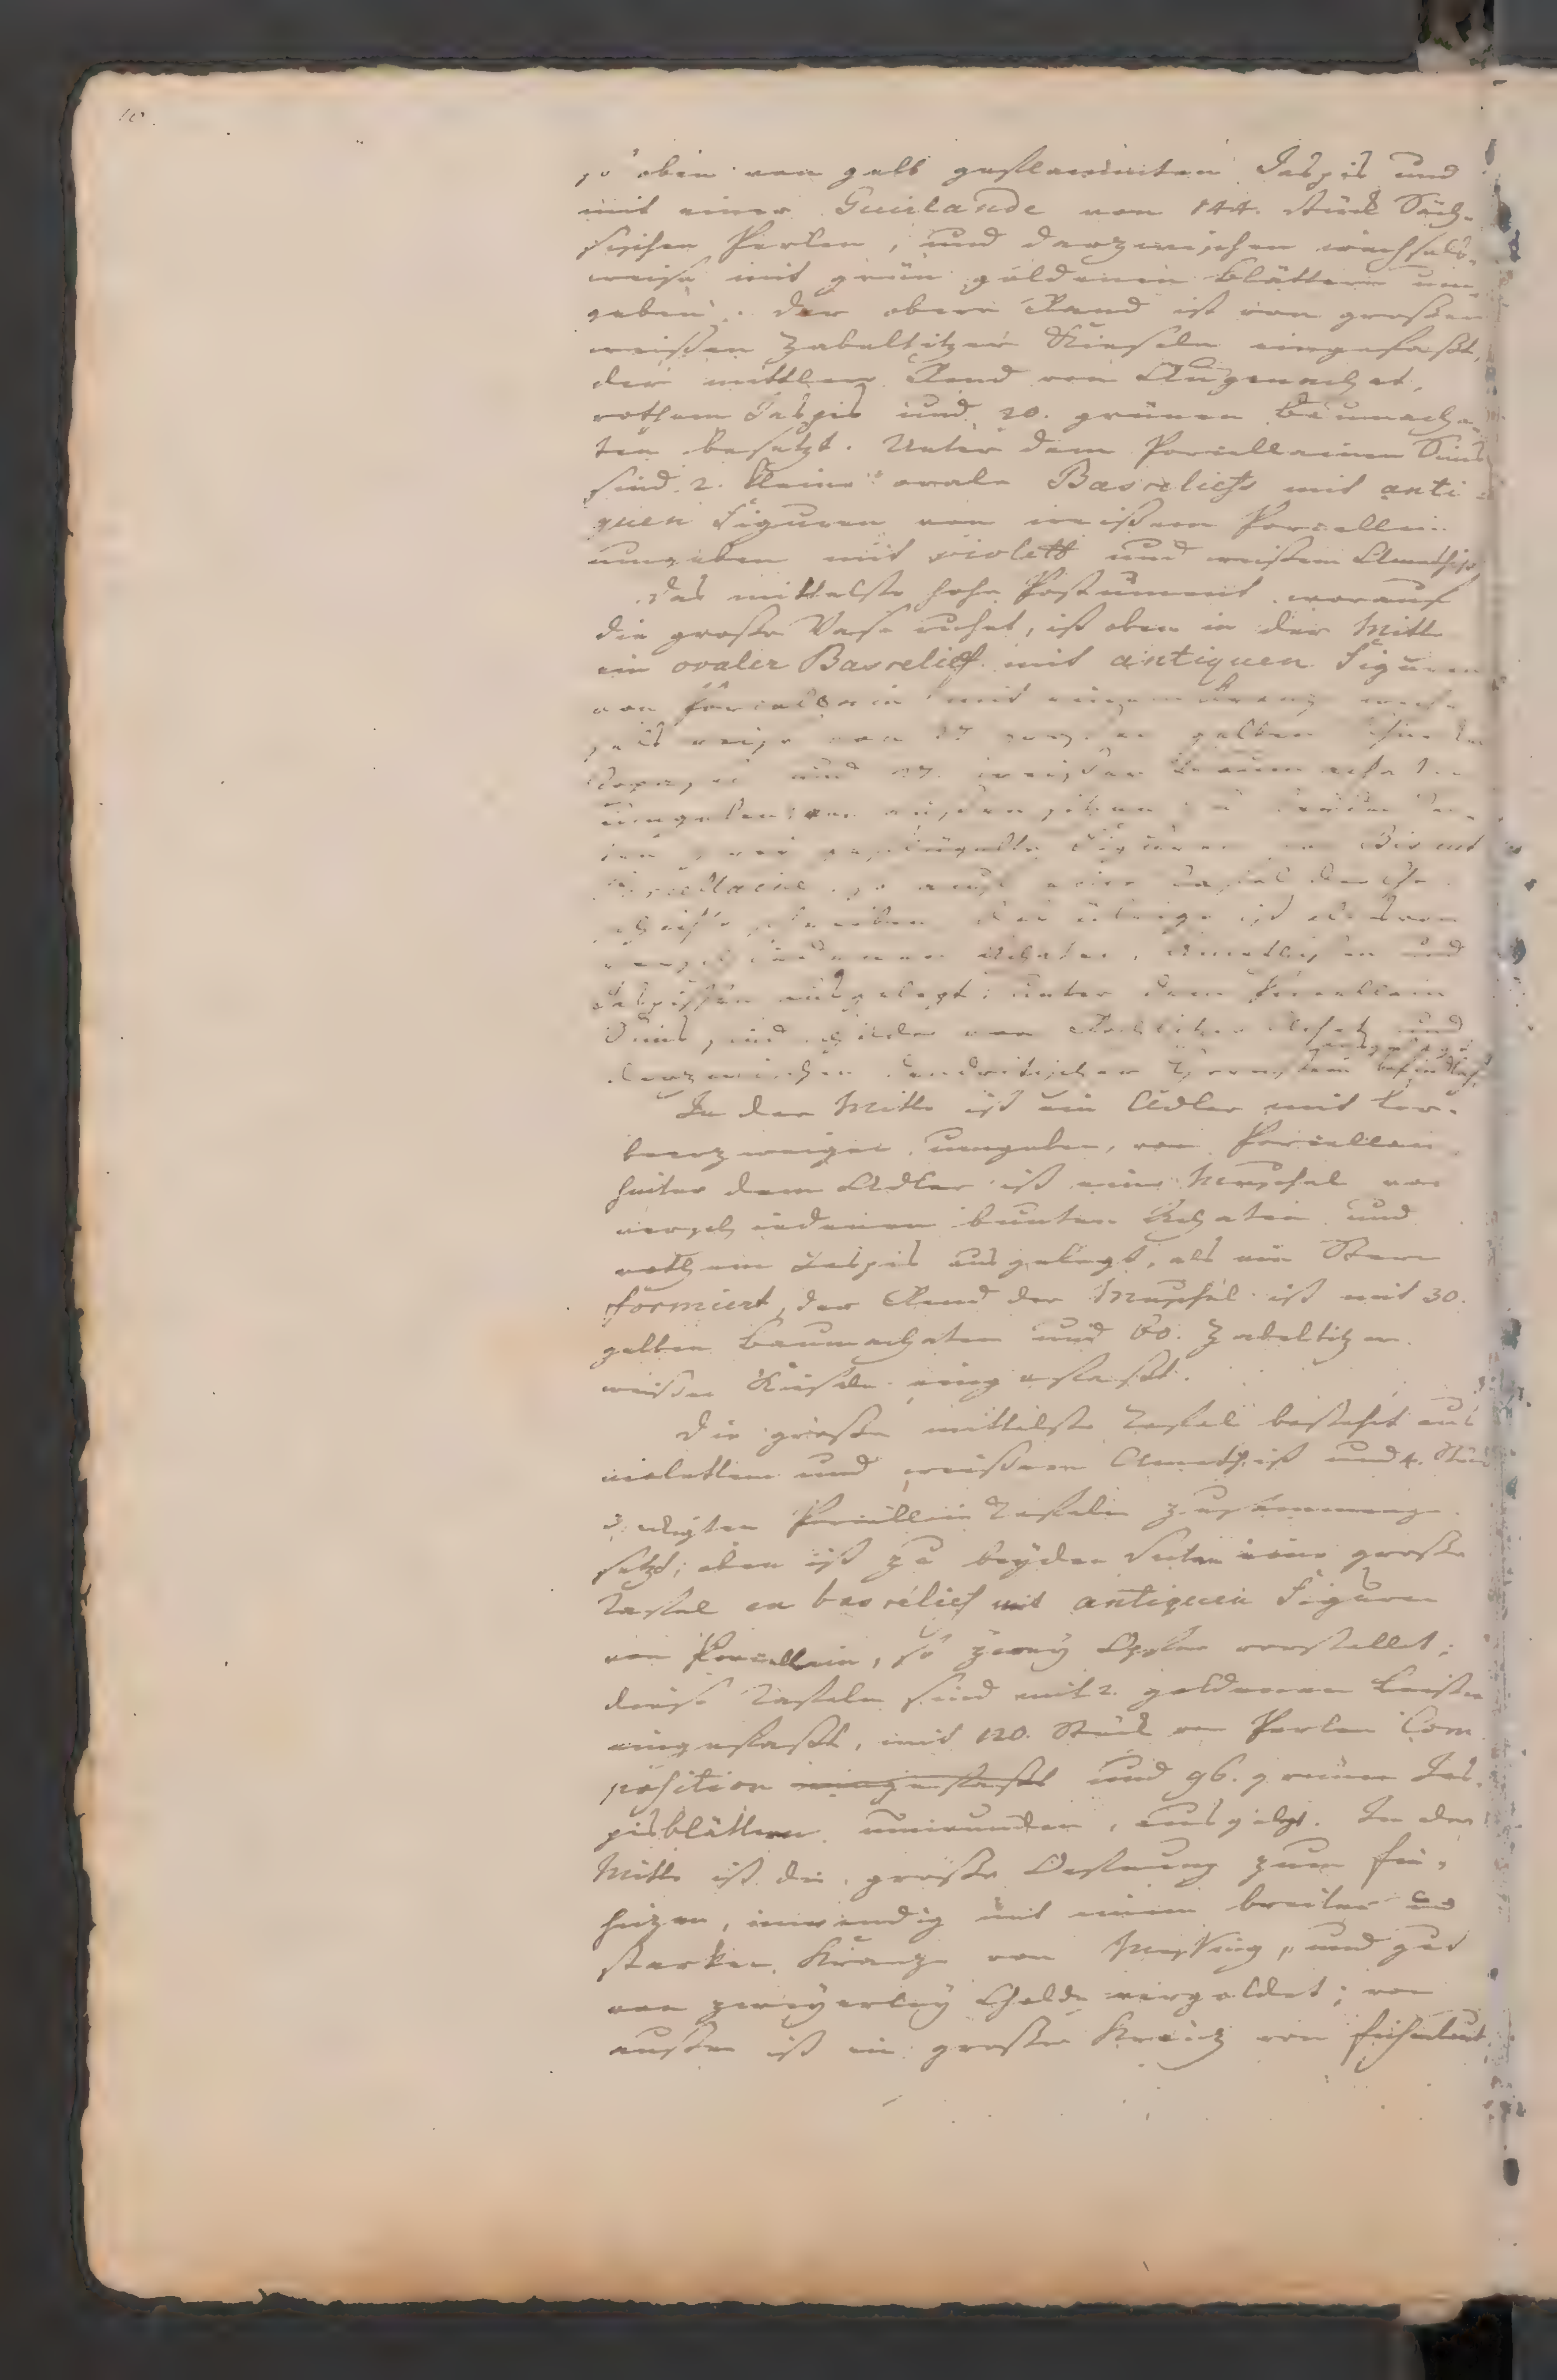 10.
so oben von gelb geflammten Jaspis und
mit einer Guirlande von 144. stück Säch-
sischen Perlen, und darzwischen wechsels-
weise mit grün goldenen Blättern um-
geben. der obere Rand ist von großen
weißen Zabeltitzer Kieseln eingefaßt,
der mittlere Rand von Augenachat,
rothem Jaspis und 20. grünen Baumacha-
ten besetzt. Unter dem Porcellainen Sims
sind 2. kleine ovale Basreliefs mit anti-
quen Figuren von weißem Porcellain
umgeben mit violett und weißem Amethist
Das mittelste hohe Postument worauf
die große Vase ruhet, ist oben in der Mitte
ein ovaler Basrelief mit antiquen Figuren
von Porcellain mit einem Kranz wech-
sels weise von 27 gelben
und 27. weißen Baumachaten
umgeben; an
zwei geflügelte Figuren von Biscuit
Porcellaine, so auf eine Tafel
schreiben. das übrige ist
verschiedenen Achaten, Amethisten und
Jaspissen ausgelegt; unter dem Porcellain
Sims sind Felder von Achat und
darzwischen dendritischer befindlich,
In der Mitte ist ein Adler mit Lor-
beerzweigen umgeben, von Porcellain
hinter dem Adler ist eine Muschel von
verschiedenen bunten Achaten und
rothem Jaspis ausgelegt, als ein Stern
formiert, der Rand der Muschel ist mit 30.
gelben Baumachaten und 60. Zabeltitzer
weißen Kieseln eingefaßt.
Die große mittelste Tafel bestehet aus
violettem und weißem Amethist und 4. Stück
3 eckigten Porcellain Tafeln zusammenge-
setzt; oben ist zu beyden Seiten eine große
Tafel en basrelief mit antiquen Figuren
von Porcellain, so zwey Opfer vorstellet;
diese Tafeln sind mit 2. goldenen Leisten
eingefaßt, mit 120. Stück von Perlen Com
position eingefaßt und 96. grünen Jas-
pisblättern umwunden, ausgelegt. In der
Mitte ist die große Oefnung zum Ein-
heizen, inwendig mit einem breiten und
starken Kranze von Messing, und gut
von zweyerley Golde vergoldet; von
außen ist ein großer Kranz von